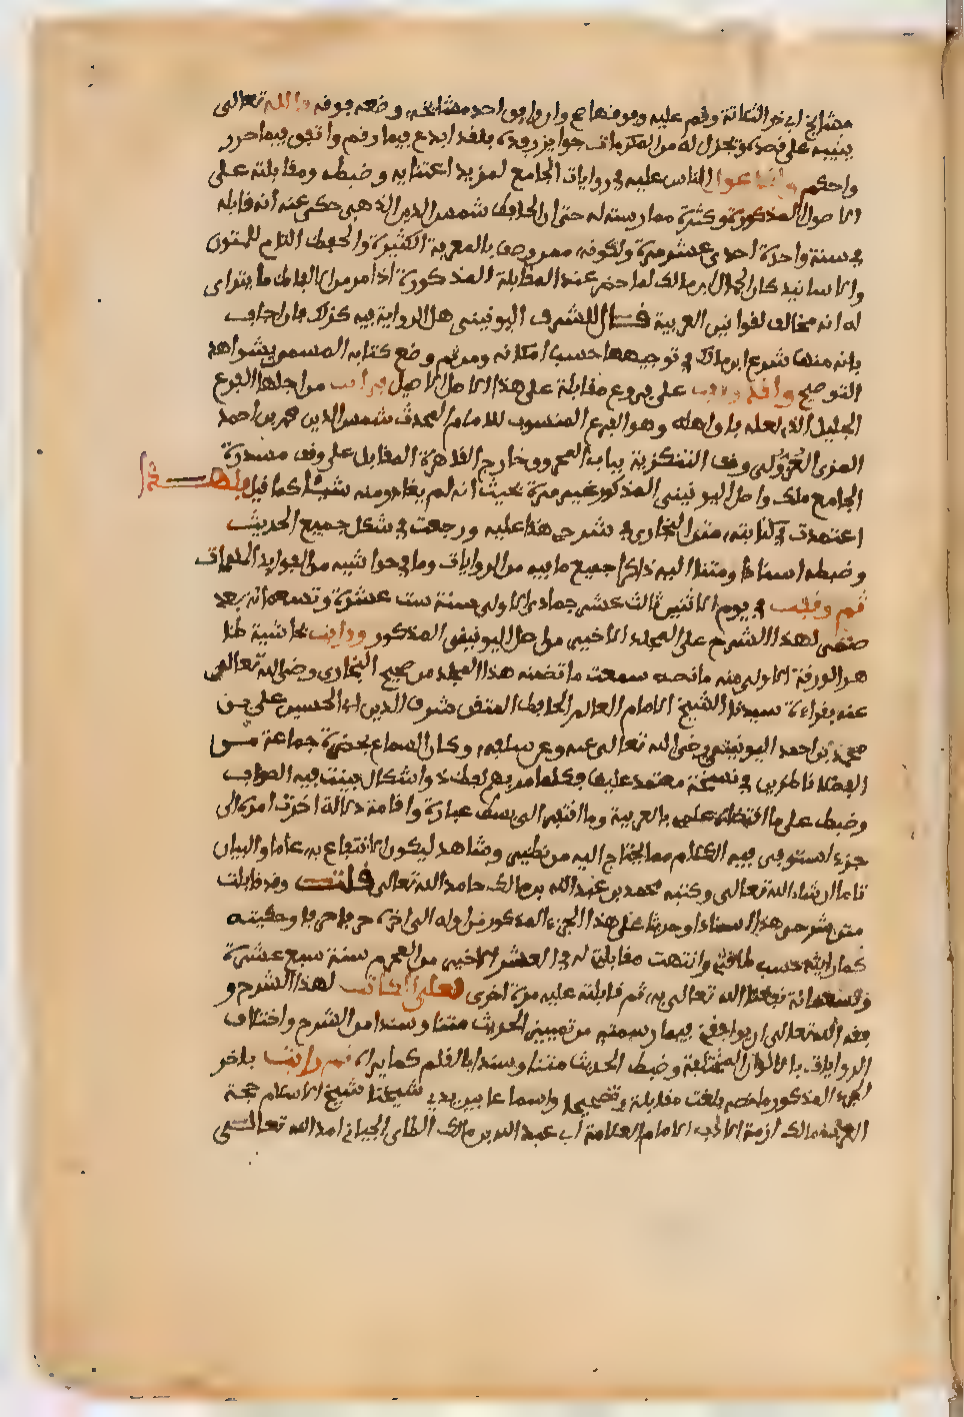 مشايخ ابي ذر الثلاثة رقم عليه وفوقها ع وان وافق احد مشايخه وضعه فوقه والله تعالى
يثيبه على قصده ويجزل له من المكرمات جوايز رفده فلقد ابدع فيما رقم واتقن فيما حرر
واحكم ولقد عول الناس عليه في روايات الجامع لمزيد اعتنايه وضبطه ومقابلته على
الاصول المذكورة وكثرة ممارسته له حتى ان الحافظ شمس الدين الذهبي حكى عنه أنه قابله
في سنة واحدة احدى عشر مرة ولكونه ممن وصف بالمعرفة الكثيرة والحفظ التام للمتون
والاسانيد كان الجمال ابن مالك لما حضر عند المقابلة المذكورة اذا مر من الالفاظ ما يتراى
له انه مخالف لقوانين العربية قال للشرف اليونيني هل الرواية فيه كذلك فان اجاب
بانه منها شرع ابن مالك في توجيهها حسب امكانه ومن ثم وضع كتابه المسمى بشواهد
التوضيح ولقد وقفت على فروع مقابلة على هذا الاصل الاصيل فرايت من اجلها الفرع
الجليل الذي لعله فاق اصله وهو الفرع المنسوب للامام المحدث شمس الدين محمد بن احمد
المزى الغزولي وقف التنكزية بباب المحروق خارج القاهرة المقابل على وقف مدرسة
الجامع ملك واصل اليونيني المذكور غير مرة بحيث انه لم يغادر منه شيئا كما قيل فلهذا
اعتمدت في كتابته متن البخاري في شرحى هذا عليه ورجعت في شكل جميع الحديث
وضبطه اسنادا ومتنا اليه ذاكرا جميع ما فيه من الروايات وما في حواشيه من الفوايد المهمات
ثم وقفت في يوم الاثنين ثالث عشر جمادى الاولى سنة ست عشرة وتسعماية بعد
ختمى لهذا الشرح على المجلد الاخير من اصل اليونيني المذكور ورايت بحاشية ظا
هر الورقة الاولى منه ما نصه سمعت ما تضمنه هذا المجلد من صحيح البخاري رضي الله تعالى
عنه بقراءة سيدنا الشيخ الامام العالم الحافظ المتقن شرف الدين ابي الحسين علي بن
محمد بن احمد اليونيني رضي الله تعالى عنه وعن سلفه وكان السماع بحضرة جماعة من
الفضلا ناظرين في نسخة معتمد عليها فكلما مر بهم لفظ ذو اشكال بينت فيه الصواب
وضبط على ما اقتضاه علمي بالعربية وما افتقر الى بسط عبارة واقامة دلالة اخرت امره الى
جزء استوفى فيه الكلام مما يحتاج اليه من نظير وشاهد ليكون الانتفاع به عاما والبيان
تاما ان شاء الله تعالى وكتبه محمد بن عبد الله بن مالك حامدا لله تعالى قلت وقد قابلت
متن شرحى هذا اسنادا وحديثا على هذا الجزء المذكور من اوله الى اخره حرفا حرفا وحكيته
كما رايته حسب طاقتي وانتهت مقابلتي له في العشر الاخير من المحرم سنة سبع عشرة
وتسعماية نفع الله تعالى به ثم قابلته عليه مرة اخرى فعلى الكاتب لهذا الشرح و
فقه الله تعالى ان يوافقني فيما رسمته من تمييز الحديث متنا وسندا من الشرح واختلاف
الروايات بالالوان المختلفة وضبط الحديث متنا وسندا بالقلم كما يراه ثم رايت باخر
الجزء المذكور ما نصه بلغت مقابلة وتصحيحا واسماعا بين يدي شيخنا شيخ الاسلام حجة
العرب مالك ازمة الادب الامام العلامة ابي عبد الله بن مالك الطائي الجياني امد الله تعالى